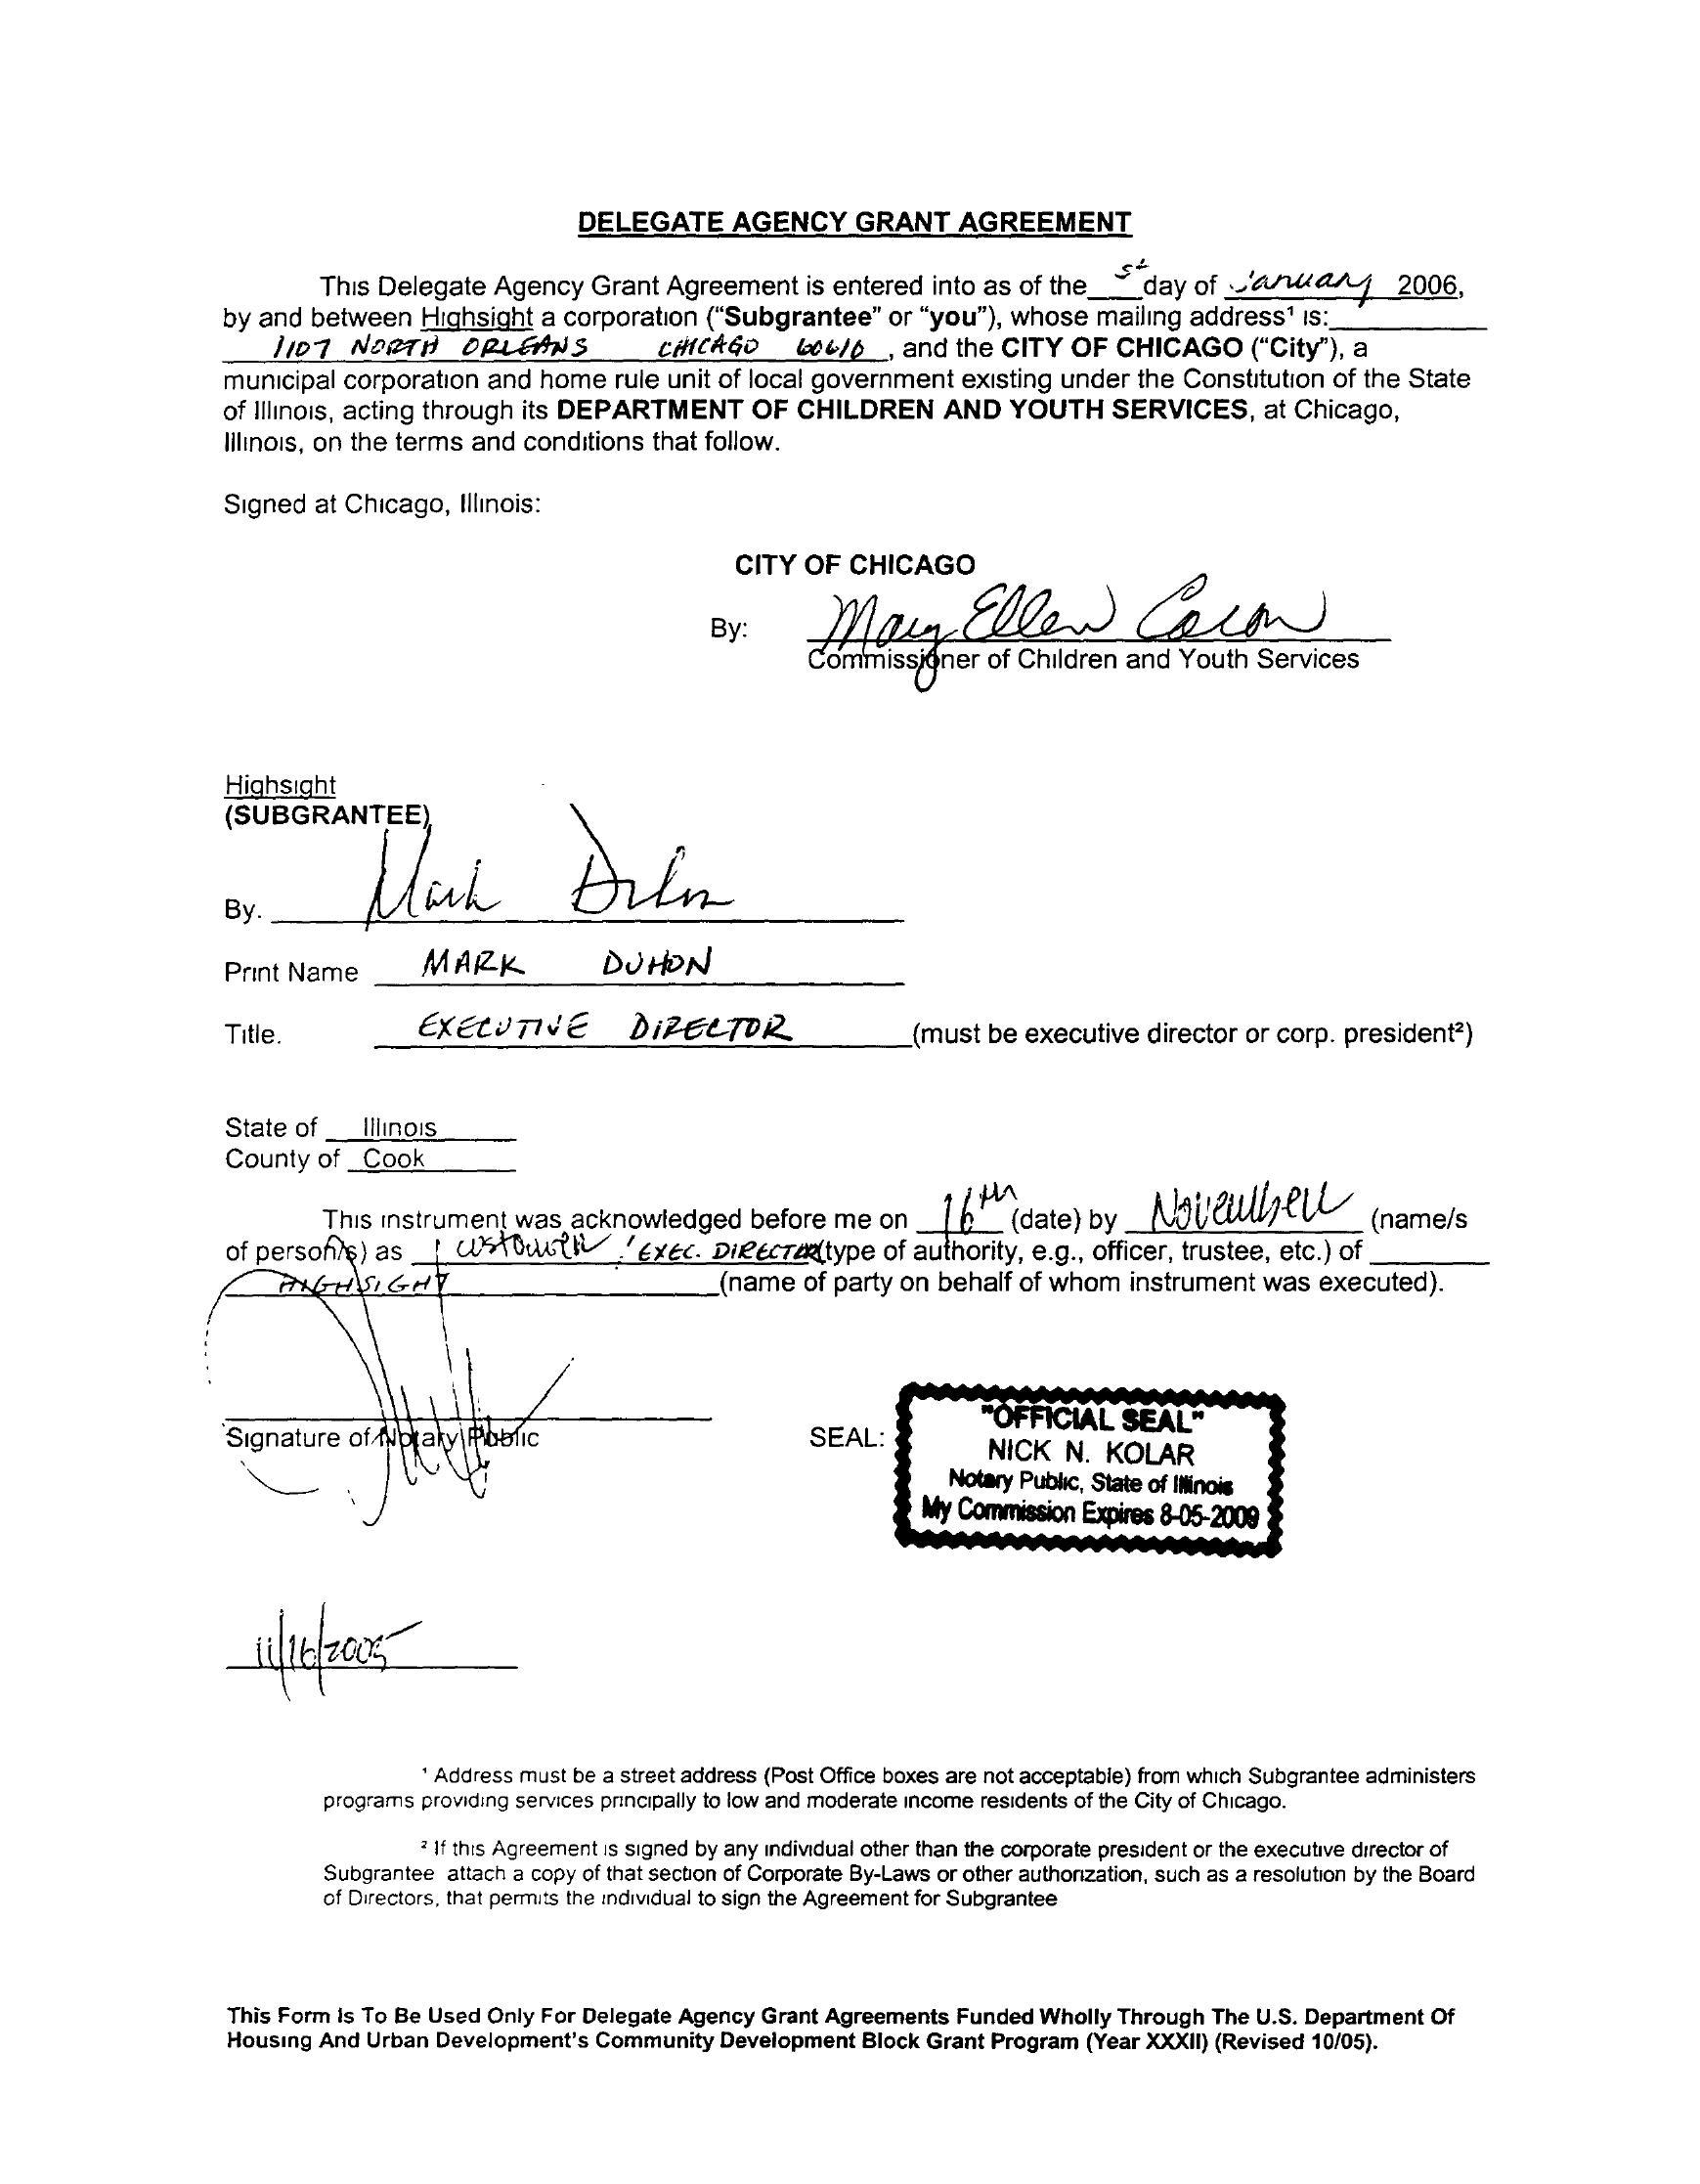 DELEGATE AGENCY GRANT AGREEMENT
This Delegate Agency Grant Agreement is entered into as of the st day of January 2006,
by and between Highsight a corporation ("Subgrantee" or "you"), whose mailing address¹ is:
1107 NORTH ORLEANS CHICAGO 60610, and the CITY OF CHICAGO ("City"), a
municipal corporation and home rule unit of local government existing under the Constitution of the State
of Illinois, acting through its DEPARTMENT OF CHILDREN AND YOUTH SERVICES, at Chicago,
Illinois, on the terms and conditions that follow.
Signed at Chicago, Illinois:
CITY OF CHICAGO
By: Mary Ellen
Commissioner of Children and Youth Services
Highsight
(SUBGRANTEE)
By. Mark Duhon
Print Name MARK DUHON
Title. EXECUTIVE DIRECTOR (must be executive director or corp. president²)
State of Illinois
County of Cook
This instrument was acknowledged before me on 16th (date) by November (name/s
of person/s) as customer EXEC. DIRECTOR (type of authority, e.g., officer, trustee, etc.) of
HIGHSIGHT (name of party on behalf of whom instrument was executed).
Signature of Notary Public
SEAL:
"OFFICIAL SEAL"
NICK N. KOLAR
Notary Public, State of Illinois
My Commission Expires 8-05-2009
11/16/2005
¹ Address must be a street address (Post Office boxes are not acceptable) from which Subgrantee administers
programs providing services principally to low and moderate income residents of the City of Chicago.
² If this Agreement is signed by any individual other than the corporate president or the executive director of
Subgrantee attach a copy of that section of Corporate By-Laws or other authorization, such as a resolution by the Board
of Directors, that permits the individual to sign the Agreement for Subgrantee
This Form Is To Be Used Only For Delegate Agency Grant Agreements Funded Wholly Through The U.S. Department Of
Housing And Urban Development's Community Development Block Grant Program (Year XXXII) (Revised 10/05).